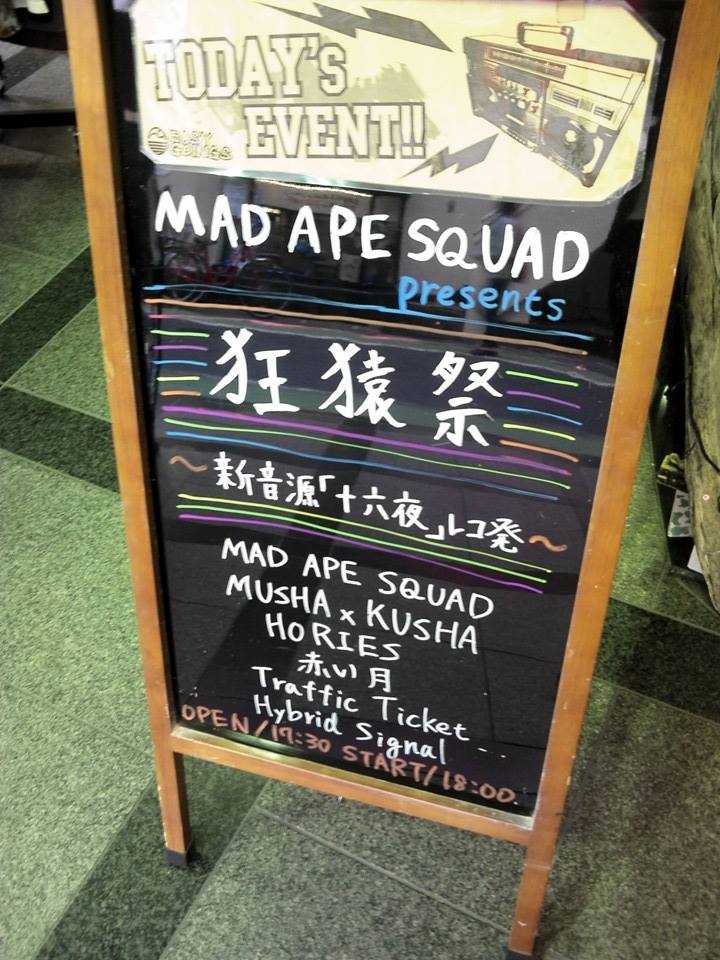 TODAY's
EVENT!!
MAD APE SQUAD
presents
狂猿祭
～新音源「十六夜」レコ発～
MAD APE SQUAD
MUSHA x KUSHA
HORIES
赤い月
Traffic Ticket
Hybrid Signal ...
OPEN/17:30 START/18:00